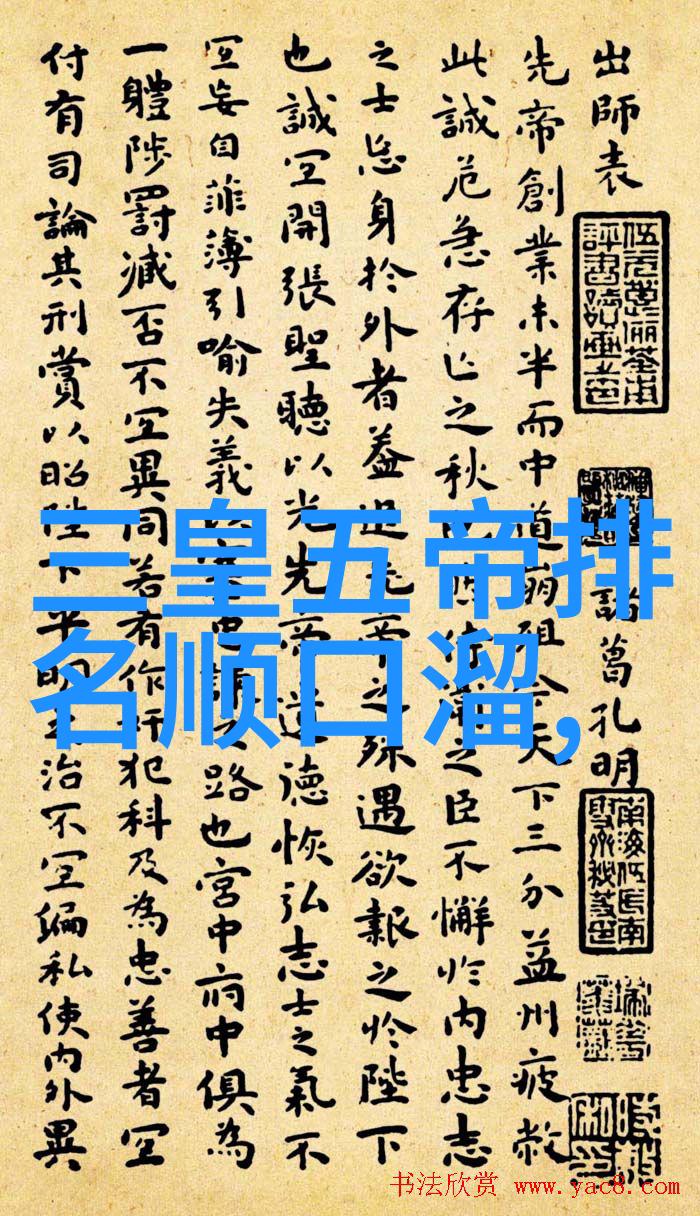 出師表
諸葛孔明
先帝創業未半而中道崩殂今天下三分益州疲敝
此誠危急存亡之秋也然侍衛之臣不懈於內忠志
之士忘身於外者蓋追先帝之殊遇欲報之於陛下
也誠宜開張聖聽以光先帝遺德恢弘志士之氣不
宜妄自菲薄引喻失義以塞忠諫之路也宮中府中俱為
一體陟罰臧否不宜異同若有作奸犯科及為忠善者宜
付有司論其刑賞以昭陛下平明之治不宜偏私使內外異
三皇五帝排
名顺口溜,
书法欣赏 www.yac8.com